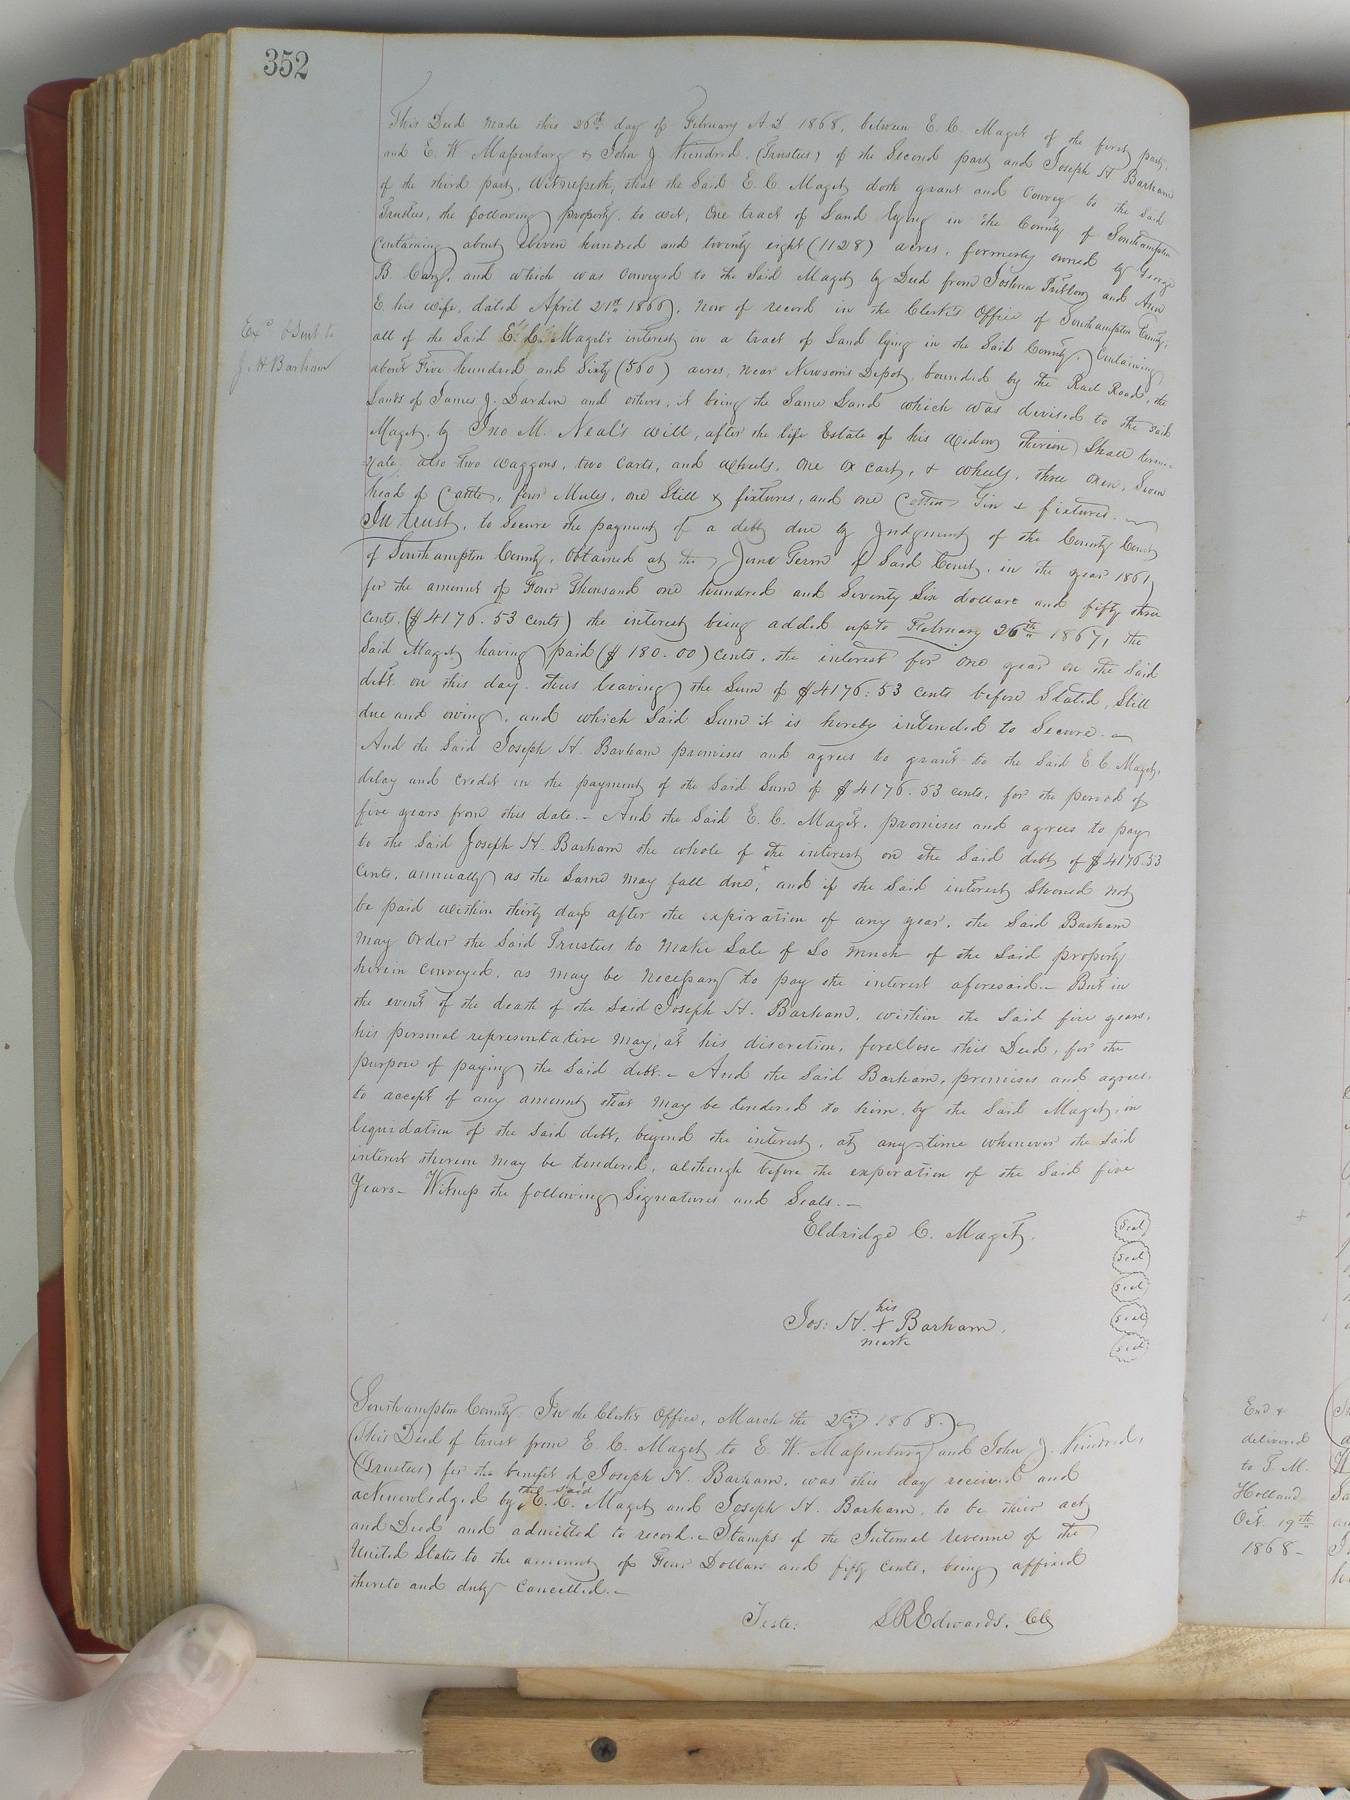 352
This Deed made this 26th day of February A.D. 1868, between E. C. Maget of the first part,
and E. W. Massenburg & John J. Kindred, (Trustees) of the Second part and Joseph H Barham
of the third part, Witnesseth, that the Said E. C Maget doth grant and Convey to the said
Trustees, the following property, to wit, One tract of Land lying in the County of Southampton
Containing about eleven hundred and twenty eight (1128) acres, formerly owned by George
B. Cary, and which was conveyed to the Said Maget by Deed from Joshua Pretlow and Ann
E. his wife, dated April 21st 1866, now of record in the Clerk's Office of Southampton County,
all of the Said E. C. Maget's interest in a tract of Land lying in the Said County, Containing
about Five hundred and Sixty (560) acres, near Newsom's Depot, bounded by the Rail Road, the
Lands of James J. Darden and others, it being the Same Land which was devised to the said
Maget, by Jno M. Neal's Will, after the life Estate of his widow therein Shall termi-
nate; also Two waggons, two Carts, and wheels, One Ox cart, & wheels, three Oxen, Seven
head of Cattle, four Mules, one Still & fixtures, and one Cotton Gin & fixtures.
In trust, to Secure the payment of a debt due by Judgment of the County Court
of Southampton County, Obtained at the June Term of Said Court, in the year 1861
for the amount of Four Thousand one hundred and Seventy Six dollars and fifty three
Cents. ($4176.53 cents) the interest being added up to February 26th 1867, the
Said Maget having paid ($180.00) cents, the interest for one year on the Said
debt on this day, thus leaving the Sum of $4176.53 cents before Stated, Still
due and owing, and which Said Sum it is hereby intended to Secure.
And the Said Joseph H. Barham promises and agrees to grant to the Said E C Maget,
delay and credit in the payment of the Said Sum of $4176.53 cents, for the period of
five years from this date. - And the Said E. C. Maget, promises and agrees to pay
to the Said Joseph H. Barham the whole of the interest on the Said debt of $4176.53
Cents, annually as the Same may fall due; and if the Said interest Should not
be paid within thirty days after the expiration of any year, the Said Barham
may Order the Said Trustees to make Sale of So much of the Said property
herein conveyed, as may be necessary to pay the interest aforesaid. - But in
the event of the death of the Said Joseph H. Barham, within the Said five years,
his personal representative may, at his discretion, foreclose this Deed, for the
purpose of paying the Said debt. - And the Said Barham, promises and agrees,
to accept of any amount that may be tendered to him, by the Said Maget, in
liquidation of the Said debt, beyond the interest, at any time whenever the Said
interest therein may be tendered, although before the expiration of the Said five
Years - Witness the following Signatures and Seals. -
Eldridge C. Maget. Seal
Seal
Seal
his
Jos: H. X Barham. Seal
mark
Seal
Exd & Sent to
J. H Barham
Southampton County. In the Clerk's Office, March the 1868.
This Deed of trust from E. C. Maget to E. W. Massenburg and John J. Kindred,
(Trustees) for the benefit of Joseph H. Barham, was this day received and
acknowledged by the said E. C. Maget and Joseph H. Barham, to be their act
and Deed and admitted to record. - Stamps of the Internal revenue of the
United States to the amount of Four Dollars and fifty cents, being affixed
thereto and duly cancelled. -
Teste: LREdwards, Clk
Exd &
delivered
to M.
Holland
Oct. 19th
1868 -